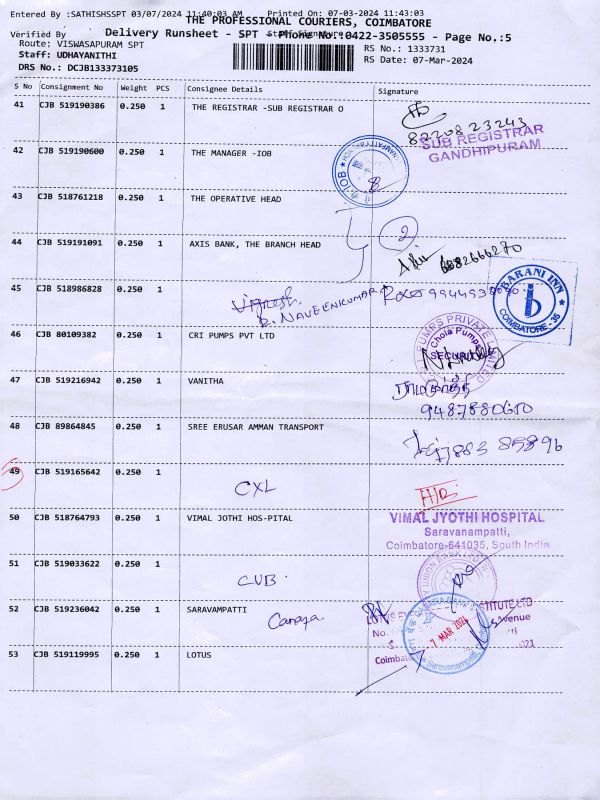 Entered By :SATHISHSSPT 03/07/2024 11:40:03 AM Printed On: 07-03-2024 11:43:03
THE PROFESSIONAL COURIERS, COIMBATORE
Verified By Staff Signature
Delivery Runsheet - SPT - Phone No.:0422-3505555 - Page No.:5
Route: VISWASAPURAM SPT RS No.: 1333731
Staff: UDHAYANITHI RS Date: 07-Mar-2024
DRS No.: DCJB133373105
S No Consignment No Weight PCS Consignee Details Signature
41 CJB 519190386 0.250 1 THE REGISTRAR -SUB REGISTRAR O
8220823243
SUB REGISTRAR
GANDHIPURAM
42 CJB 519190600 0.250 1 THE MANAGER -IOB
IOB
43 CJB 518761218 0.250 1 THE OPERATIVE HEAD
2
44 CJB 519191091 0.250 1 AXIS BANK, THE BRANCH HEAD
45 CJB 518986828 0.250 1
Vignesh
R. NAVEENKUMAR
BARANI INN
COIMBATORE - 35
46 CJB 80109382 0.250 1 CRI PUMPS PVT LTD
PUMPS PRIVATE LIMITED
Chola Pumps
SECURITY
47 CJB 519216942 0.250 1 VANITHA
48 CJB 89864845 0.250 1 SREE ERUSAR AMMAN TRANSPORT
49 CJB 519165642 0.250 1
CXL
50 CJB 518764793 0.250 1 VIMAL JOTHI HOS-PITAL
VIMAL JYOTHI HOSPITAL
Saravanampatti,
Coimbatore-641035, South India
51 CJB 519033622 0.250 1
CUB
UNION BANK
52 CJB 519236042 0.250 1 SARAVAMPATTI
Canara
7 MAR 2024
Saravanampatti
53 CJB 519119995 0.250 1 LOTUS